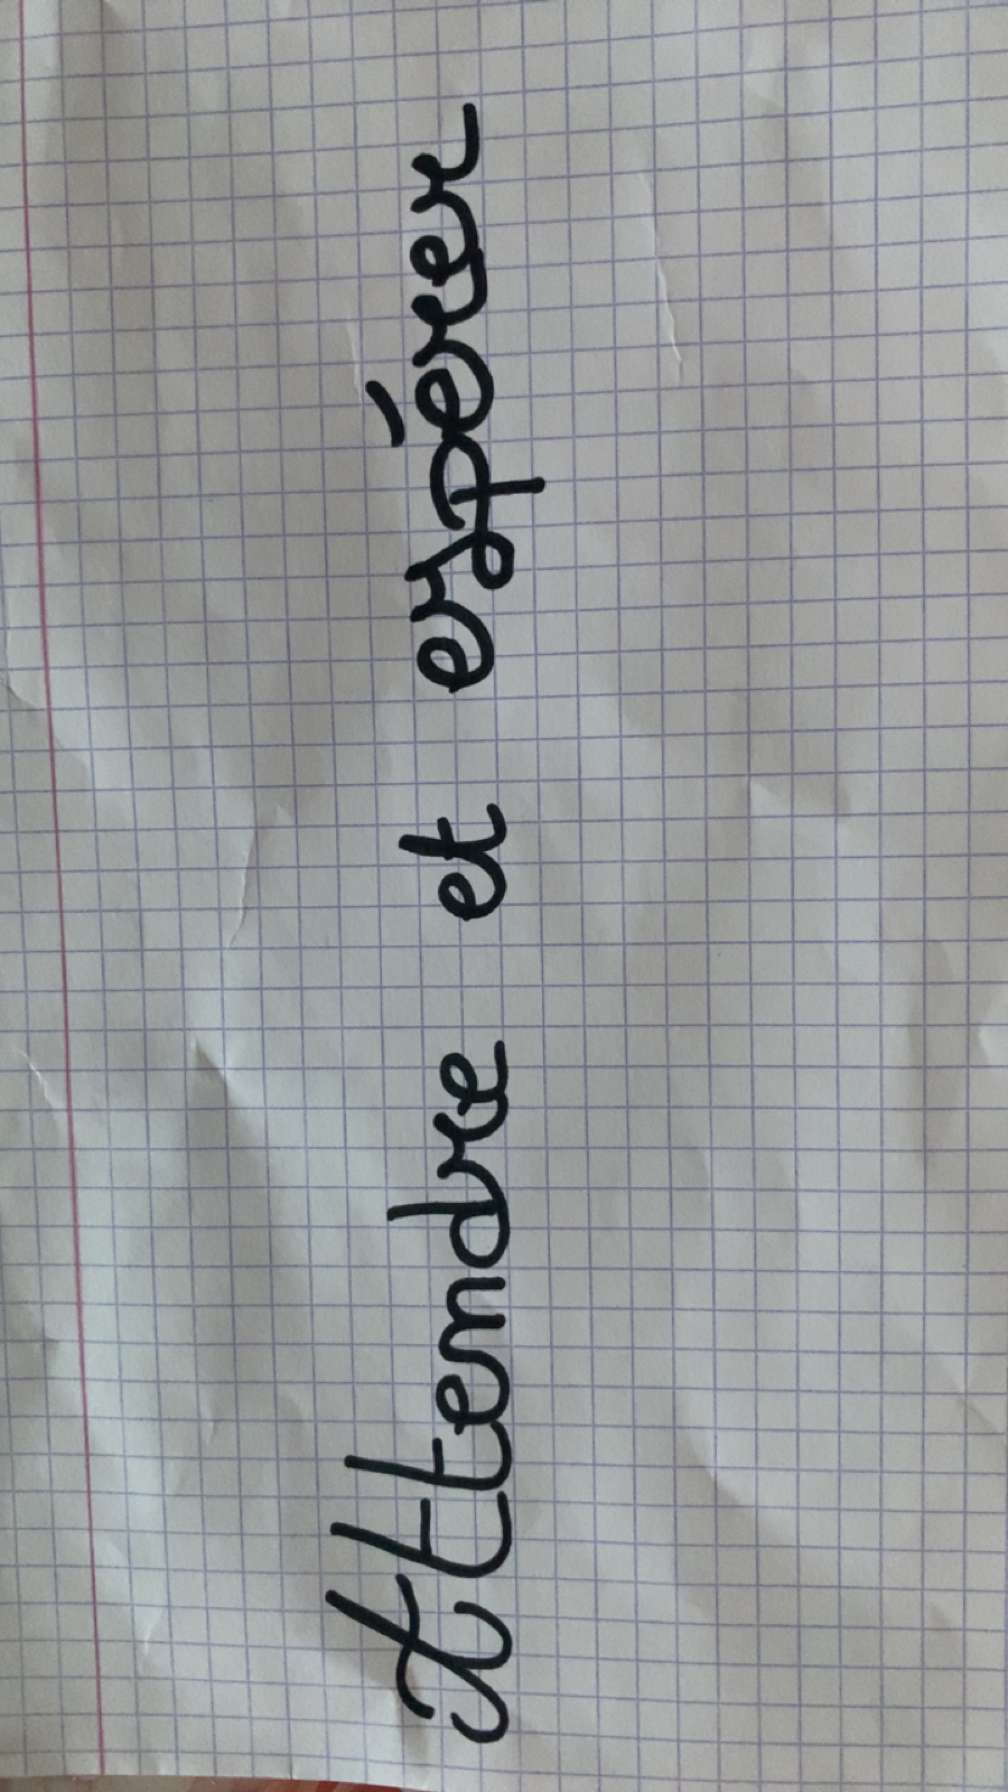 Attendre et espérer